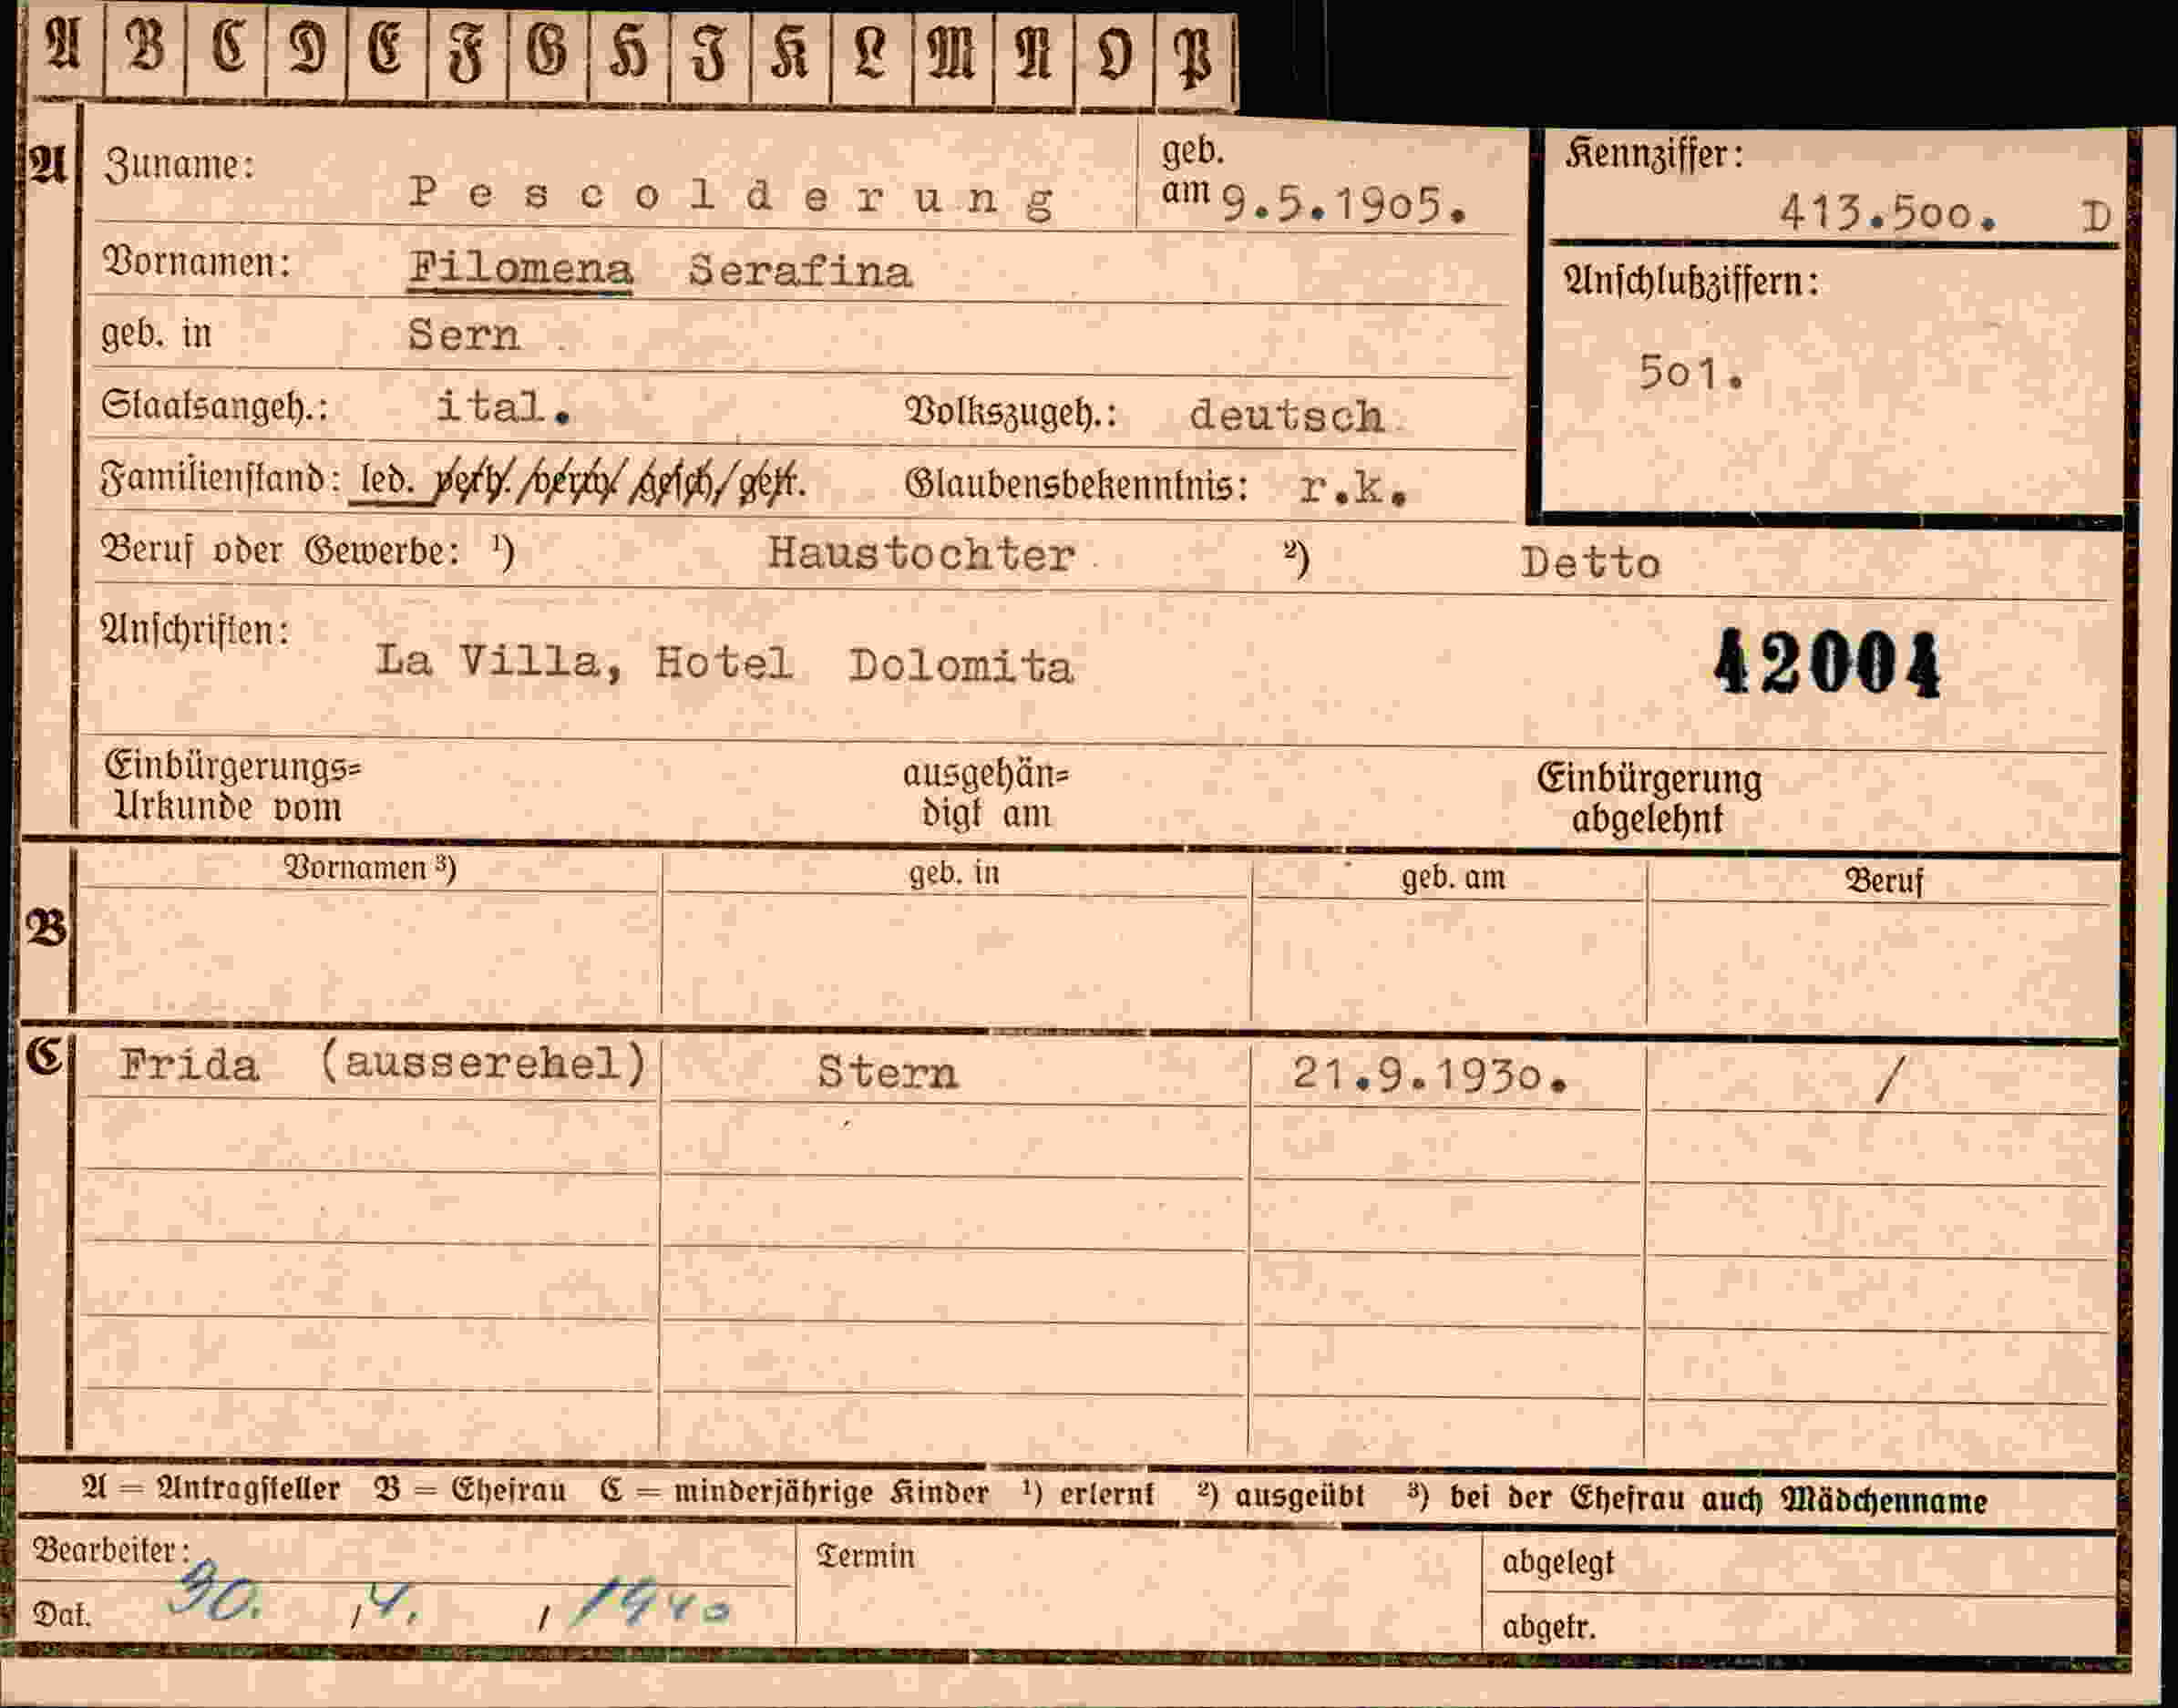 A B C D E F G H J K L M N O P
A Zuname: Pescolderung geb. am 9.5.1905. Kennziffer: 413.500. D
Vornamen: Filomena Serafina Anschlußziffern:
geb. in Sern 501.
Staatsangeh.: ital. Volkszugeh.: deutsch
Familienstand: led. verh./verw./gesch./getr. Glaubensbekenntnis: r.k.
Beruf oder Gewerbe: ¹) Haustochter ²) Detto
Anschriften: La Villa, Hotel Dolomita 42004
Einbürgerungs= ausgehän= Einbürgerung
Urkunde vom digt am abgelehnt
B Vornamen ³) geb. in geb. am Beruf
C Frida (ausserehel) Stern 21.9.1930. /
A = Antragsteller B = Ehefrau C = minderjährige Kinder ¹) erlernt ²) ausgeübt ³) bei der Ehefrau auch Mädchenname
Bearbeiter: Termin abgelegt
Dat. 30. / 4. / 1940 abgetr.